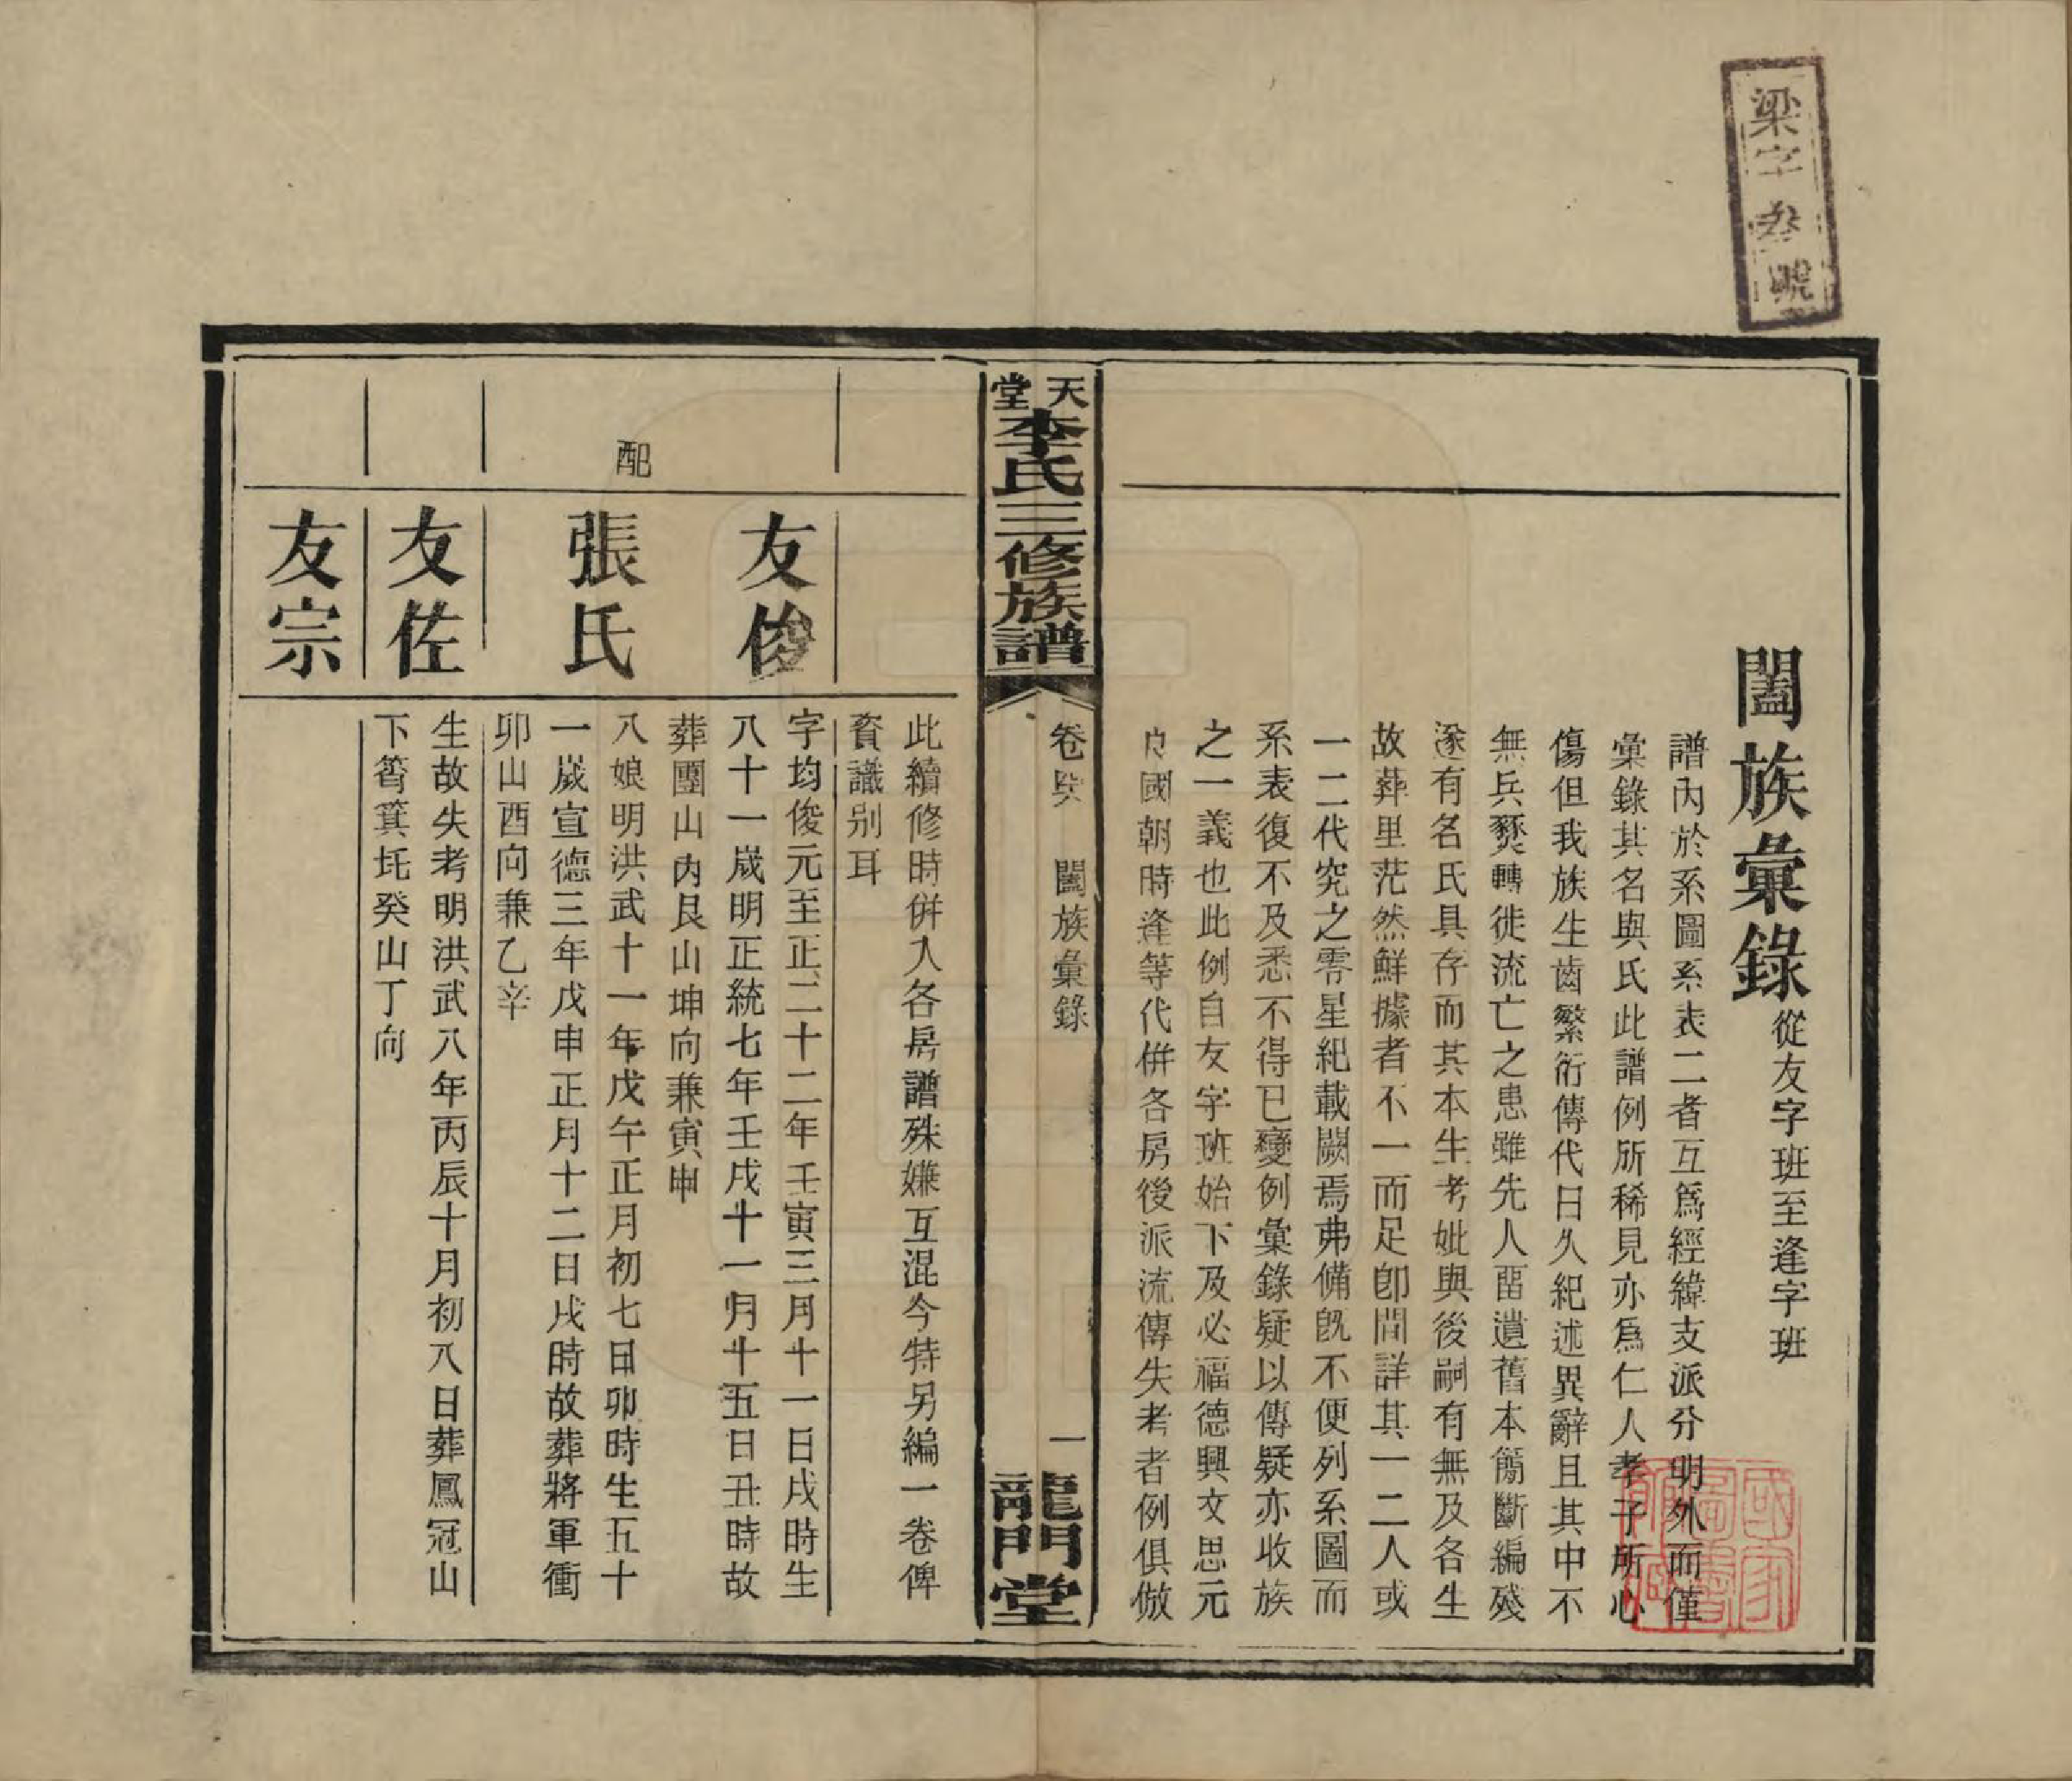 梁字叁號
闔族彙錄從友字班至逢字班
譜內於系圖系表二者互爲經緯支派分明外而僅
彙錄其名與氏此譜例所稀見亦爲仁人孝子所心
傷但我族生齒繁衍傳代日久紀述異辭且其中不
無兵燹轉徙流亡之患雖先人畱遺舊本簡斷編殘
遂有名氏具存而其本生考妣與後嗣有無及各生
故葬里茫然鮮據者不一而足卽間詳其一二人或
一二代究之零星紀載闕焉弗備旣不便列系圖而
系表復不及悉不得已變例彙錄疑以傳疑亦收族
之一義也此例自友字班始下及必福德興文思元
良國朝時逢等代併各房後派流傳失考者例俱倣
天堂李氏三修族譜
卷 闔族彙錄
一
龍門堂
此續修時併入各房譜殊嫌互混今特另編一卷俾
資識别耳
友俊
字均俊元至正二十二年壬寅三月十一日戌時生
八十一歲明正統七年壬戌十一月十五日丑時故
葬團山內艮山坤向兼寅申
配
張氏
八娘明洪武十一年戊午正月初七日卯時生五十
一歲宣德三年戊申正月十二日戌時故葬將軍衝
卯山酉向兼乙辛
友佐
生故失考明洪武八年丙辰十月初八日葬鳳冠山
下筲箕坵癸山丁向
友宗